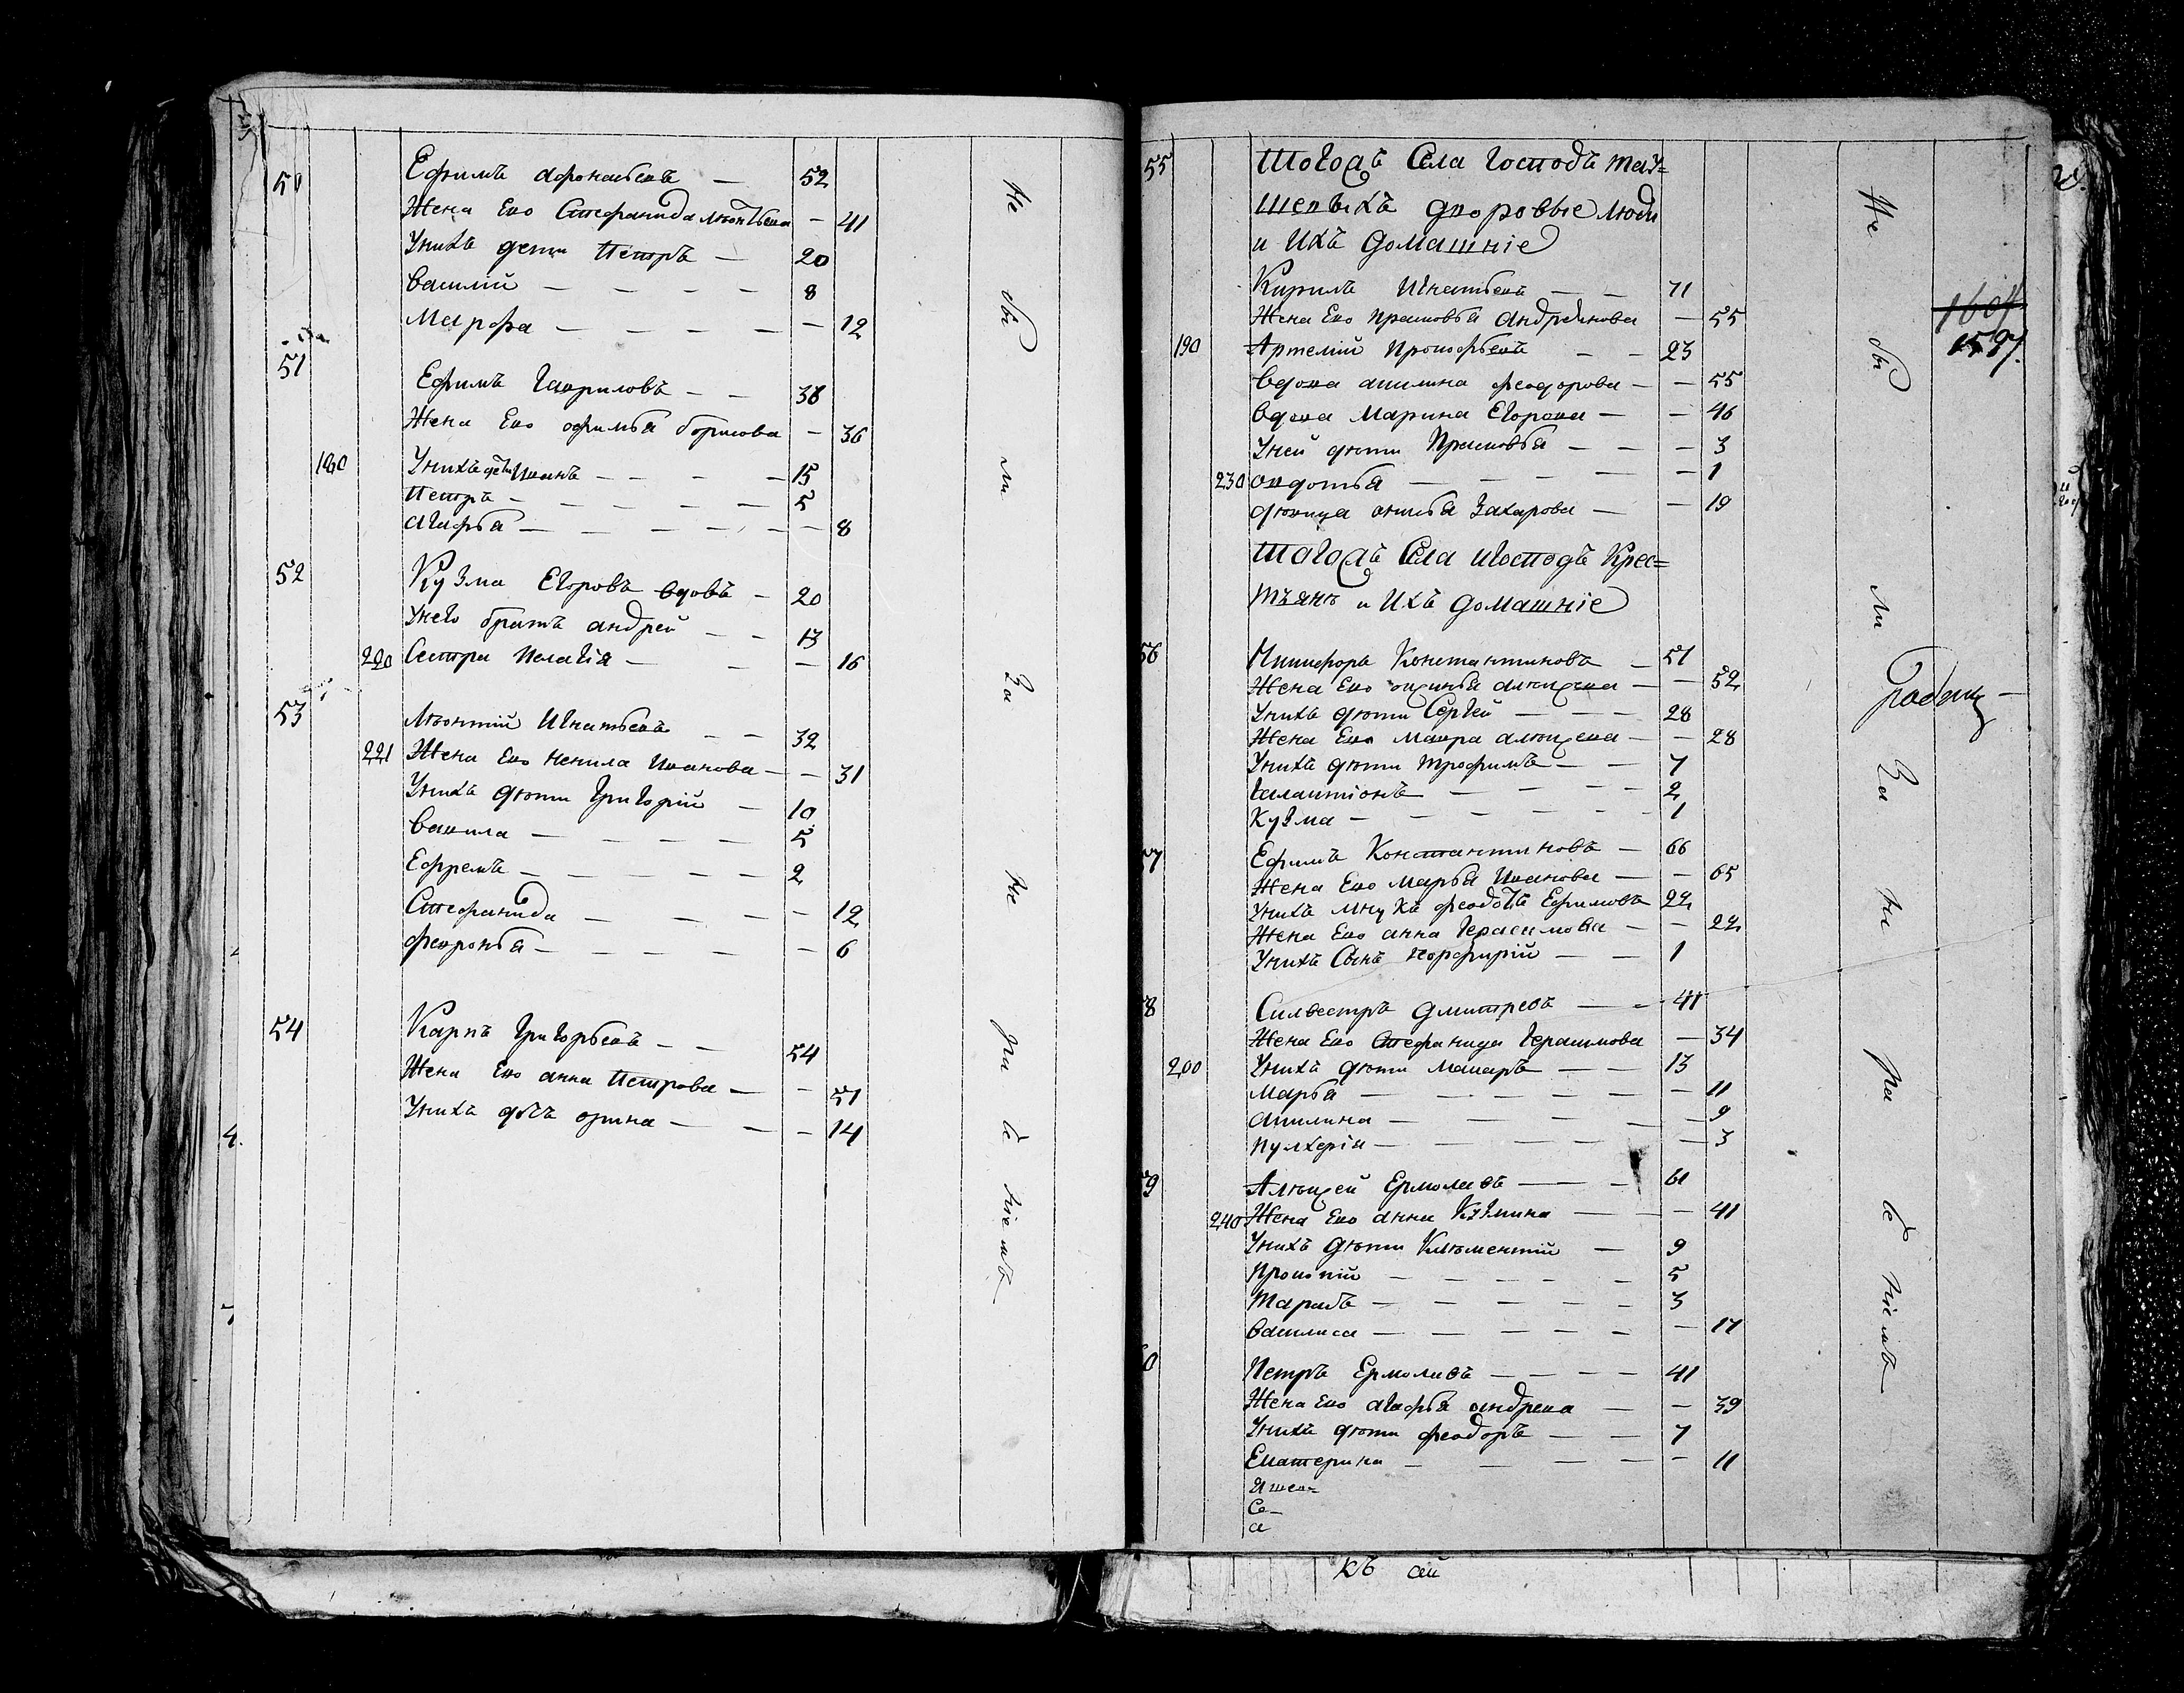 50 Ефимъ Афонасьевъ — 52
Жена Ево Стефанида Леонтьева — 41
Унихъ дети Петръ — 20
Василий — — — — 8
Марфа — — — — — 12
51 Ефимъ Гавриловъ — — 38
Жена Ево офимья борисова — 36
Унихъ дети Иванъ — — — — 15
Петръ — — — — — 5
Агафья — — — — — — 8
52 Кузма Егоровъ вдовъ — 20
Унево братъ андрей — — 13
220 Сестра Пелагия — — — 16
53 Леонтий Игнатьевъ — — 32
221 Жена Ево Ненила Иванова — — 31
Унихъ дѣти Григорий — 10
Вавила — — — — 5
Ефремъ — — — — — 2
Стефанида — — — — 12
Февронья — — — — — 6
54 Карпъ Григорьевъ — — 54
Жена Ево анна Петрова — — 51
Унихъ дочь орина — — — 14
Не бы ли за не ра се ніемъ
55 Тогожъ Села Господъ
дворовые люди
и Ихъ домашніе
Кирилъ Игнатьевъ — — 71
Жена Ево Прасковья Андреянова — 55
190 Артемий Прокофьевъ — — 23
Вдова акилина феодорова — — 55
Вдова Марина Егорова — — 46
Уней дѣти Прасковья — — — 3
230 Овдотья — — — — 1
дѣвица Захарова — — 19
Тогожъ Села Игосподъ Крес=
тьянъ и Ихъ домашніе
56 Никифоръ Константиновъ — 51
Жена Ево оксинья алексѣева — — 52
Унихъ дѣти Сергей — — — 28
Жена Ево Мавра алексѣева — — 28
Унихъ дѣти трофимъ — — 7
Галактионъ — — — — 2
Кузма — — — — — — 1
57 Ефимъ Константиновъ — 66
Жена Ево Марья Иванова — — 65
Унихъ внукъ феодотъ Ефимовъ 22
Жена Ево анна Герасимова — — 22
Унихъ Сынъ порфирий — — 1
58 Силвестръ Дмитревъ — — 41
Жена Ево Стефанида Герасимова — 34
200 Унихъ дѣти Макаръ — — 13
Марья — — — — — — 11
Акилина — — — — 9
Пулхерия — — — — — 3
59 Алексѣй Ермолаевъ — — 61
240 Жена Ево анна Кузмина — — 41
Унихъ дѣти Климентий — 9
Прокопий — — — — — 5
Тарасъ — — — — — 3
Василиса — — — — — — 17
60 Петръ Ермолаевъ — — — — 41
Жена Ево Агафья андреева — — 39
Унихъ дѣти феодоръ — — 7
Екатерина — — — — — 11
Се-
а
Не бы ли за не ра се ніемъ
1597.
къ ай